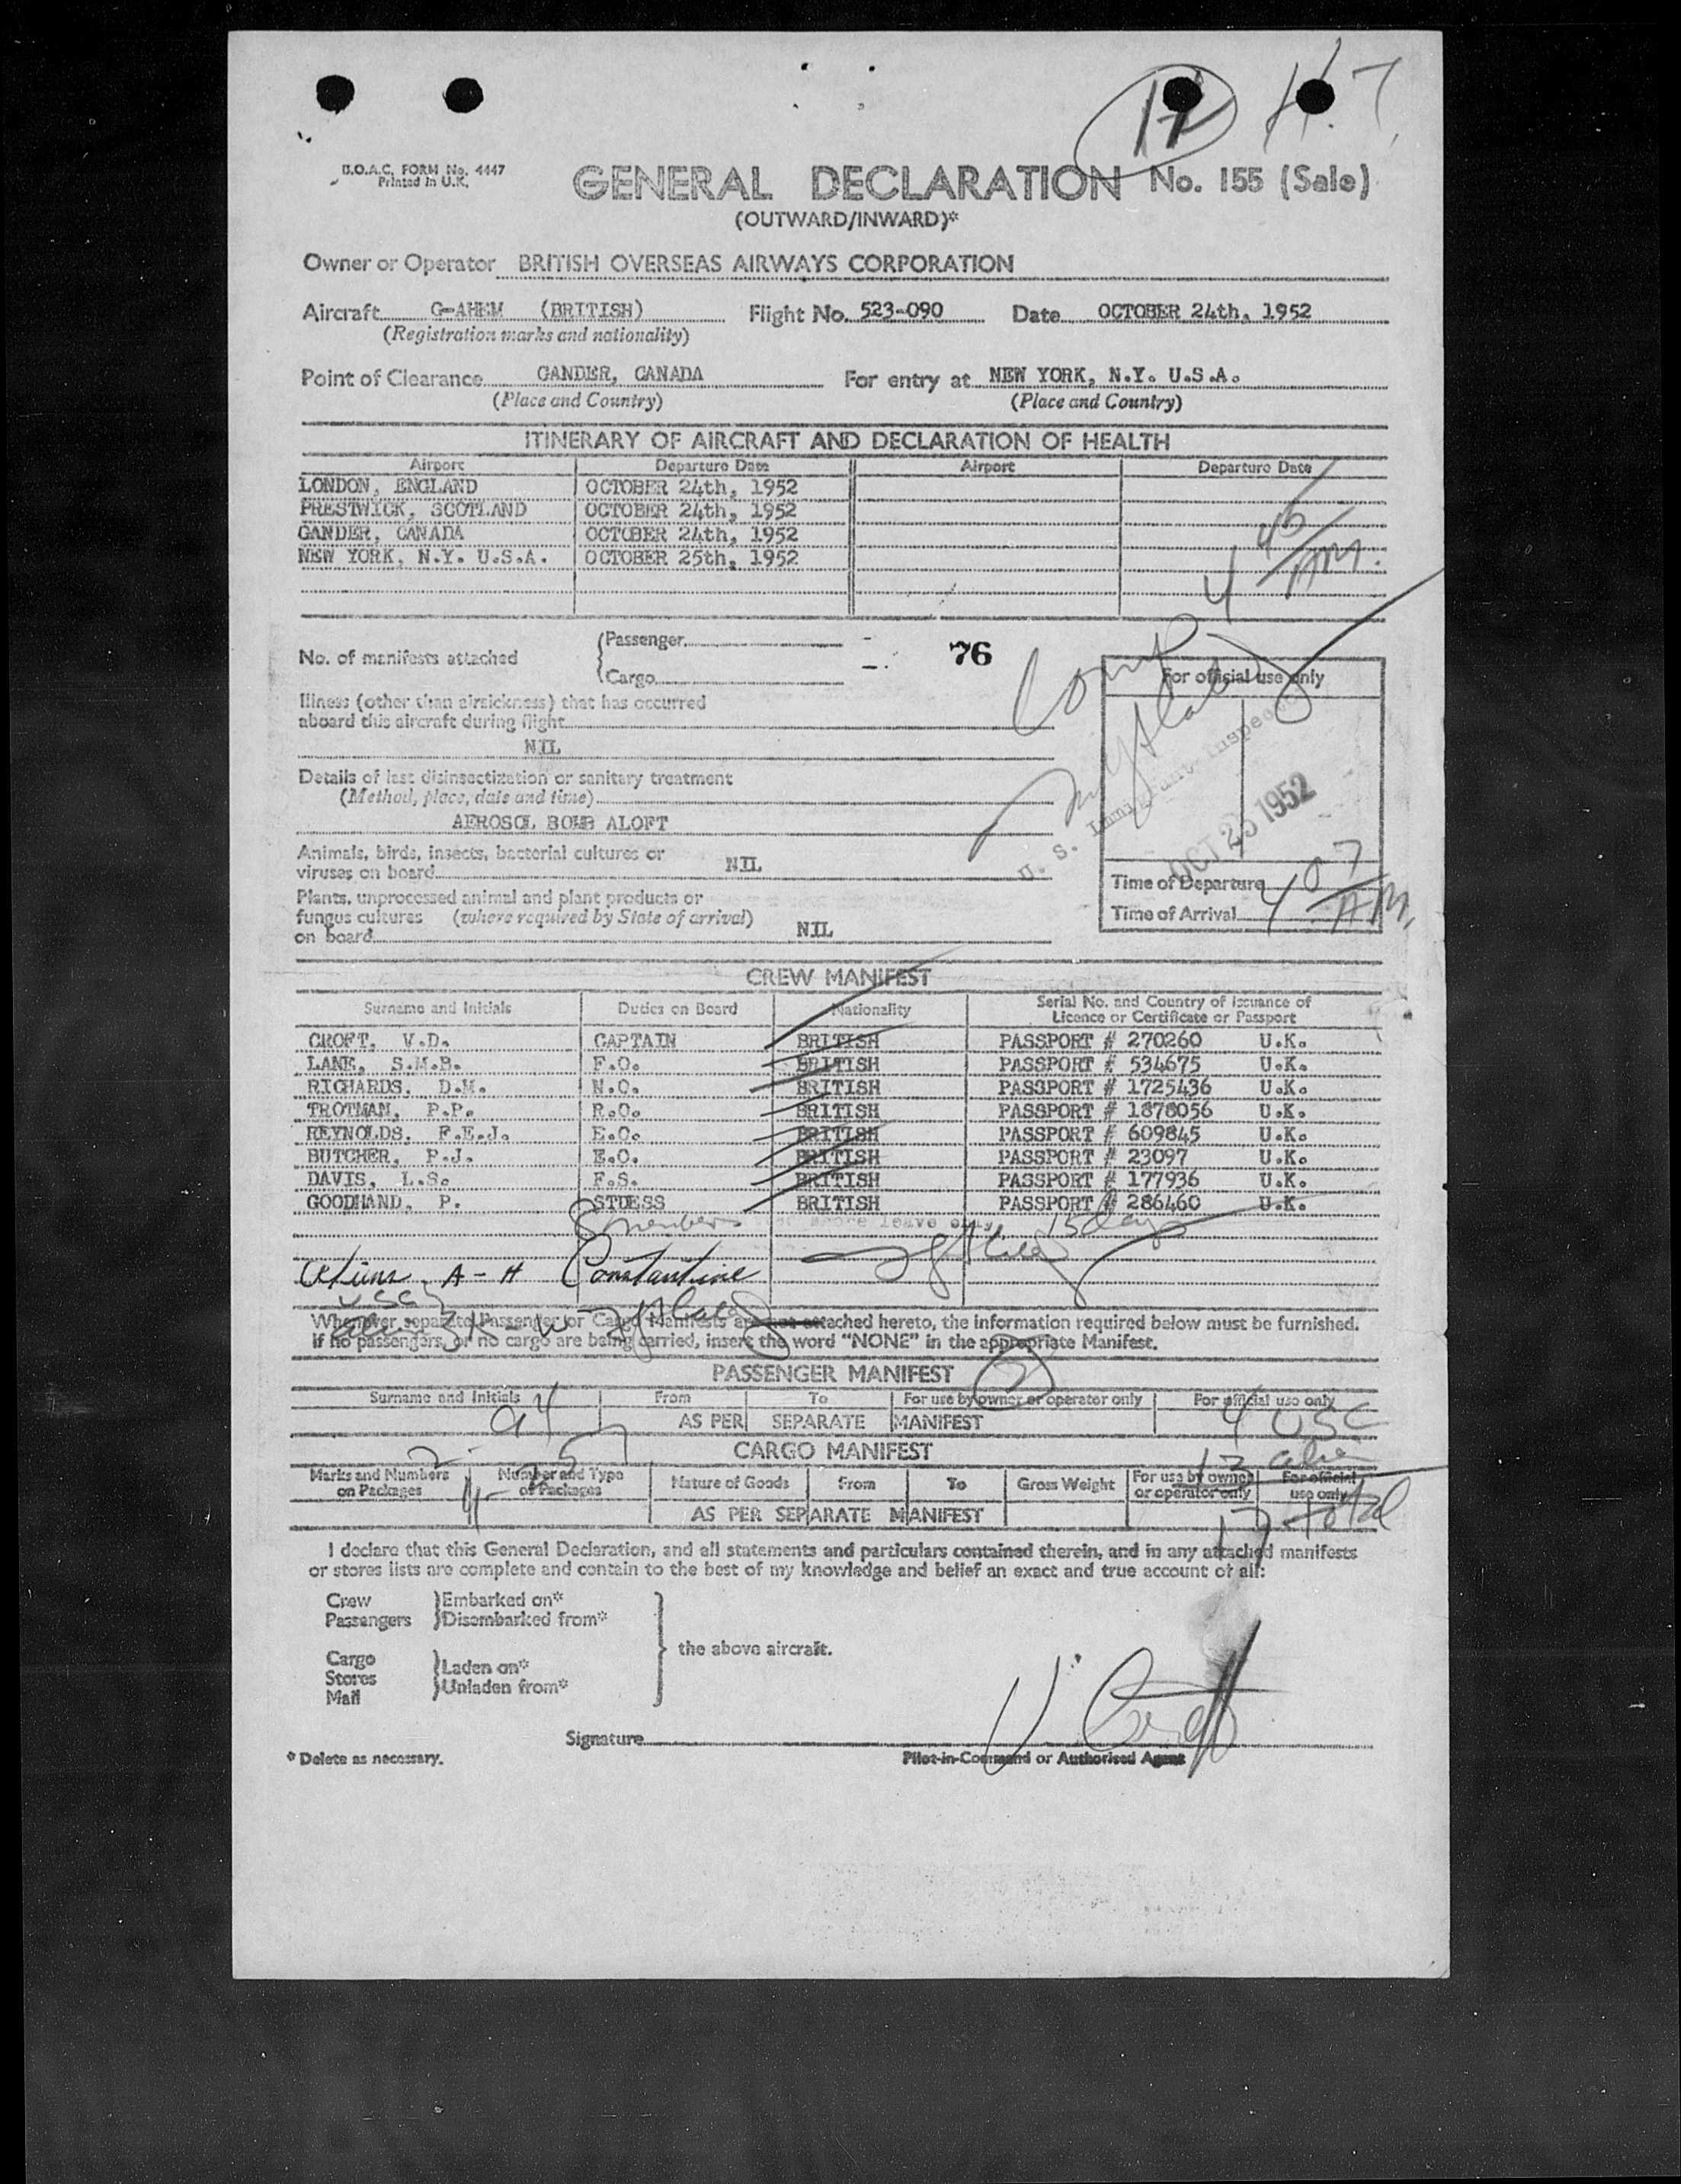 12 H.T.
B.O.A.C. FORM No. 4447
Printed in U.K.
GENERAL DECLARATION No. 155 (Sale)
(OUTWARD/INWARD)*
Owner or Operator BRITISH OVERSEAS AIRWAYS CORPORATION
Aircraft G-AHEM (BRITISH) Flight No. 523-090 Date OCTOBER 24th, 1952
(Registration marks and nationality)
Point of Clearance GANDER, CANADA For entry at NEW YORK, N.Y. U.S.A.
(Place and Country) (Place and Country)
ITINERARY OF AIRCRAFT AND DECLARATION OF HEALTH
Airport Departure Date Airport Departure Date
LONDON, ENGLAND OCTOBER 24th, 1952
PRESTWICK, SCOTLAND OCTOBER 24th, 1952
GANDER, CANADA OCTOBER 24th, 1952
NEW YORK, N.Y. U.S.A. OCTOBER 25th, 1952
Comp 4 45 AM.
No. of manifests attached
Passenger -
Cargo -
76
For official use only
Illness (other than airsickness) that has occurred
aboard this aircraft during flight
NIL
U. S. Immigrant Inspector
OCT 25 1952
Details of last disinsectization or sanitary treatment
(Method, place, date and time)
AEROSOL BOMB ALOFT
Animals, birds, insects, bacterial cultures or
viruses on board NIL
Time of Departure
Time of Arrival 4 07 AM.
Plants, unprocessed animal and plant products or
fungus cultures (where required by State of arrival)
on board NIL
CREW MANIFEST
Surname and Initials Duties on Board Nationality Serial No. and Country of Issuance of
Licence or Certificate or Passport
CROFT, V.D. CAPTAIN BRITISH PASSPORT # 270260 U.K.
LANE, S.M.B. F.O. BRITISH PASSPORT # 534675 U.K.
RICHARDS, D.M. N.O. BRITISH PASSPORT # 1725436 U.K.
TROTMAN, P.P. R.O. BRITISH PASSPORT # 1878056 U.K.
REYNOLDS, F.E.J. E.O. BRITISH PASSPORT # 609845 U.K.
BUTCHER, P.J. E.O. BRITISH PASSPORT # 23097 U.K.
DAVIS, L.S. F.S. BRITISH PASSPORT # 177936 U.K.
GOODHAND, P. STDESS BRITISH PASSPORT # 286460 U.K.
8 members shore leave only 15 days
A-H Constantine
USC
Whenever separate Passenger or Cargo Manifests are not attached hereto, the information required below must be furnished.
If no passengers, or no cargo are being carried, insert the word "NONE" in the appropriate Manifest.
PASSENGER MANIFEST
Surname and Initials From To For use by owner or operator only For official use only
AS PER SEPARATE MANIFEST 4 USC
CARGO MANIFEST
Marks and Numbers on Packages Number and Type of Packages Nature of Goods From To Gross Weight For use by owner or operator only For official use only
AS PER SEPARATE MANIFEST
17 total
I declare that this General Declaration, and all statements and particulars contained therein, and in any attached manifests
or stores lists are complete and contain to the best of my knowledge and belief an exact and true account of all:
Crew Embarked on*
Passengers Disembarked from*
the above aircraft.
Cargo
Stores Laden on*
Mail Unladen from*
Signature V. Croft
* Delete as necessary. Pilot-in-Command or Authorised Agent